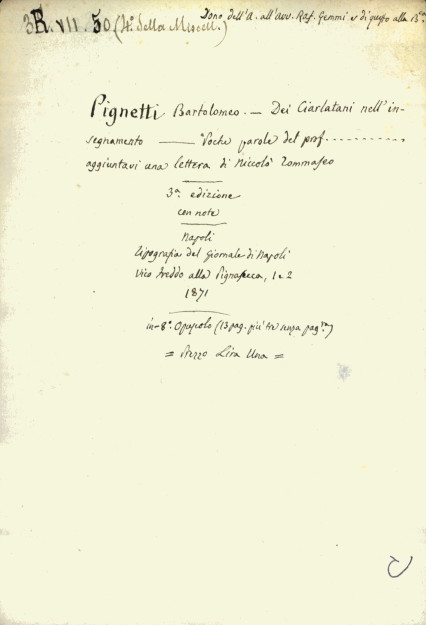 3R. VII. 50 (4° della Miscell.)
Dono dell'A. all'avv. Raf. Gemmi e di questo alla B.ca
Pignetti Bartolomeo. — Dei Ciarlatani nell'in-
segnamento —— Poche parole del prof. ...........
aggiuntavi una lettera di Niccolò Tommaseo
3.a edizione
con note
Napoli
Tipografia del Giornale di Napoli
Vico Freddo alla Pignasecca, 1 e 2
1871
in-8.° Opuscolo (13 pag. più tre senza pag.ne)
= Prezzo Lira Una =